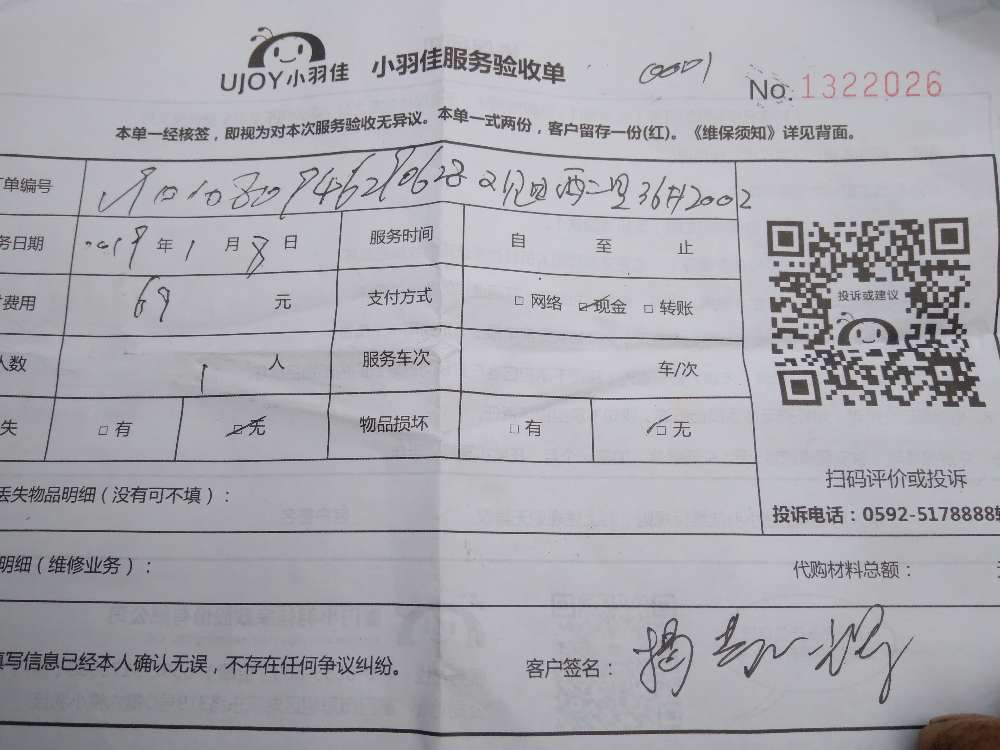 UJOY小羽佳 小羽佳服务验收单 0001 No. 1322026
本单一经核签，即视为对本次服务验收无异议。本单一式两份，客户留存一份(红)。《维保须知》详见背面。
单编号 36#2002
务日期 2019 年 1 月 8 日 服务时间 自 至 止
费用 69 元 支付方式 □ 网络 □ 现金 □ 转账
投诉或建议
人数 1 人 服务车次 车/次
失 □ 有 □ 无 物品损坏 □ 有 □ 无
扫码评价或投诉
丢失物品明细（没有可不填）：
投诉电话：0592-5178888
明细（维修业务）： 代购材料总额：
填写信息已经本人确认无误，不存在任何争议纠纷。 客户签名：